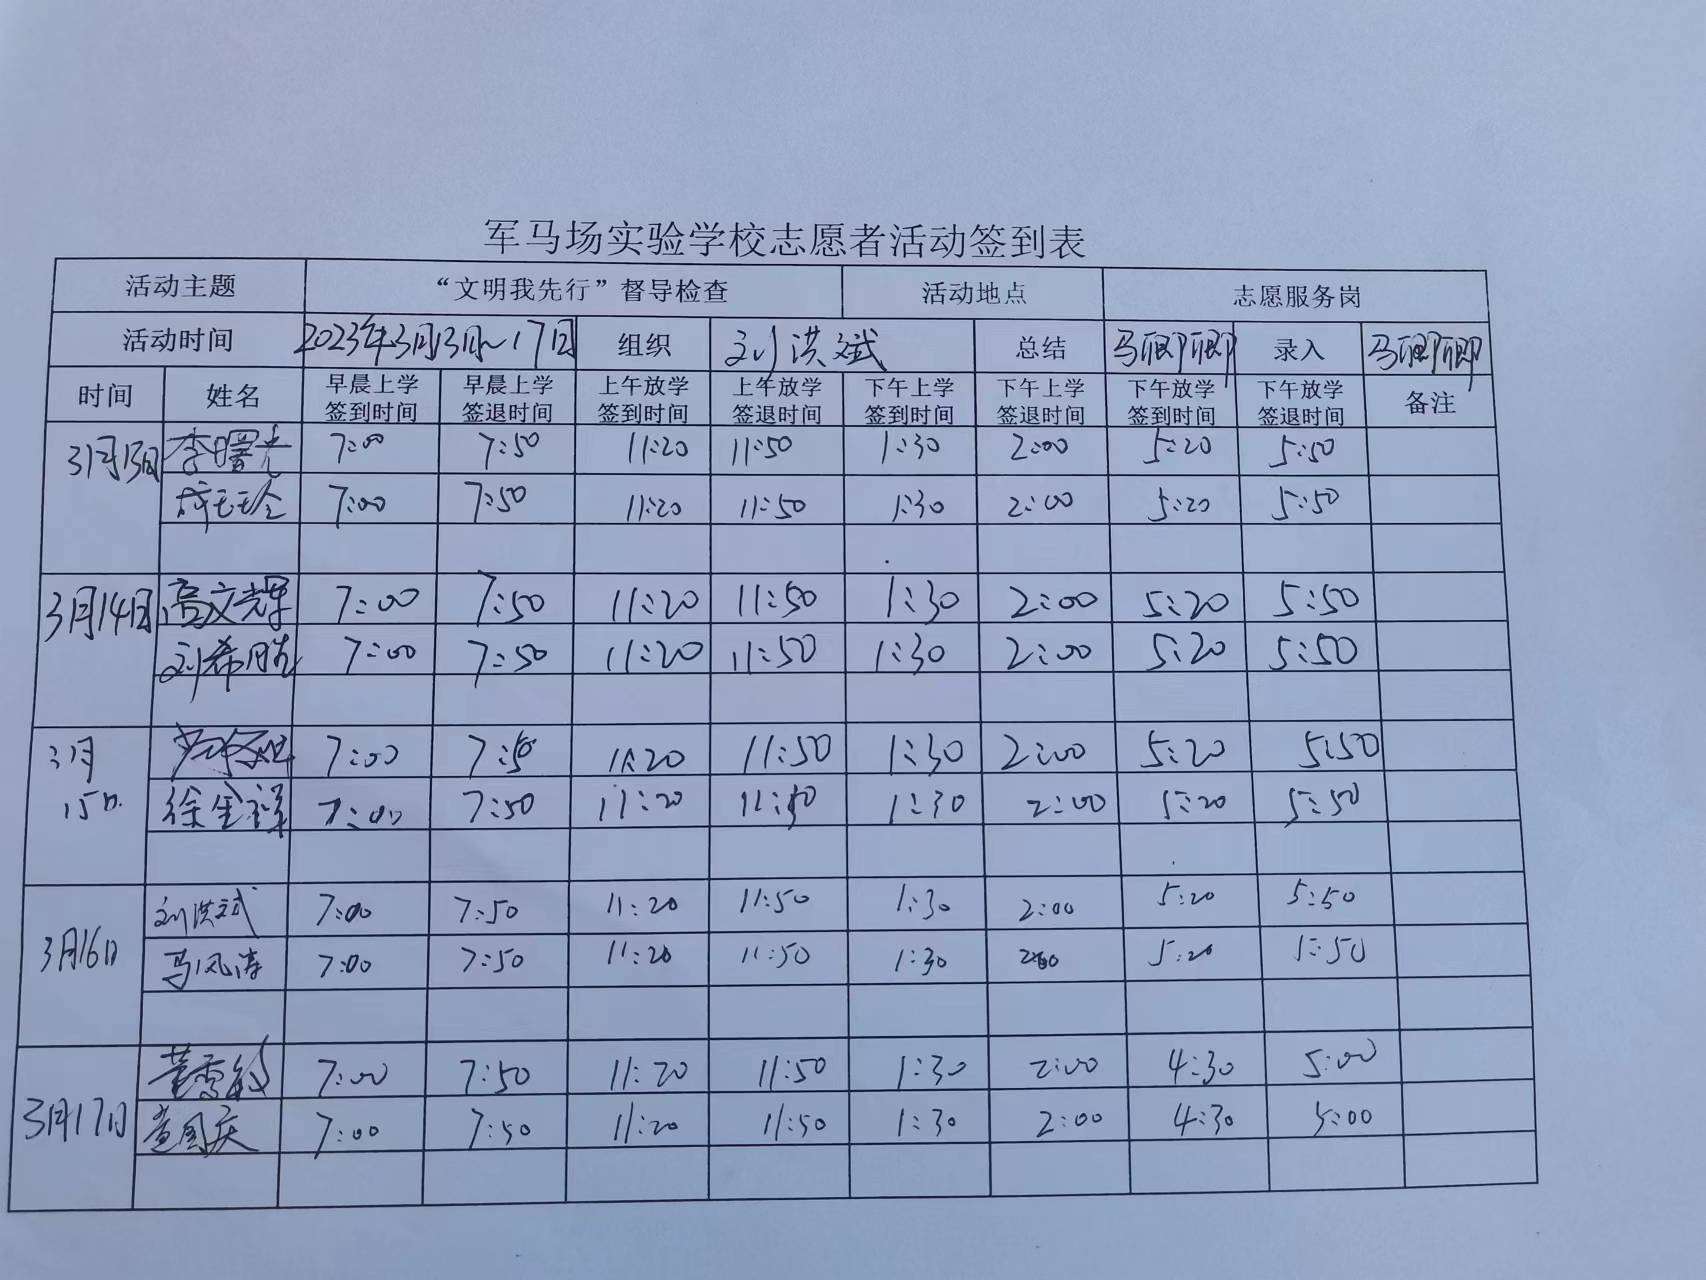 军马场实验学校志愿者活动签到表
活动主题 “文明我先行”督导检查 活动地点 志愿服务岗
活动时间 2023年3月13日~17日 组织 刘洪斌 总结 马 录入 马
时间 姓名 早晨上学签到时间 早晨上学签退时间 上午放学签到时间 上午放学签退时间 下午上学签到时间 下午上学签退时间 下午放学签到时间 下午放学签退时间 备注
3月13日 李曙光 7:00 7:50 11:20 11:50 1:30 2:00 5:20 5:50
7:00 7:50 11:20 11:50 1:30 2:00 5:20 5:50
3月14日 高文辉 7:00 7:50 11:20 11:50 1:30 2:00 5:20 5:50
刘希胜 7:00 7:50 11:20 11:50 1:30 2:00 5:20 5:50
3月15日 7:00 7:50 11:20 11:50 1:30 2:00 5:20 5:50
徐金祥 7:00 7:50 11:20 11:50 1:30 2:00 5:20 5:50
3月16日 刘洪斌 7:00 7:50 11:20 11:50 1:30 2:00 5:20 5:50
马凤涛 7:00 7:50 11:20 11:50 1:30 2:00 5:20 5:50
3月17日 董雪敏 7:00 7:50 11:20 11:50 1:30 2:00 4:30 5:00
国庆 7:00 7:50 11:20 11:50 1:30 2:00 4:30 5:00